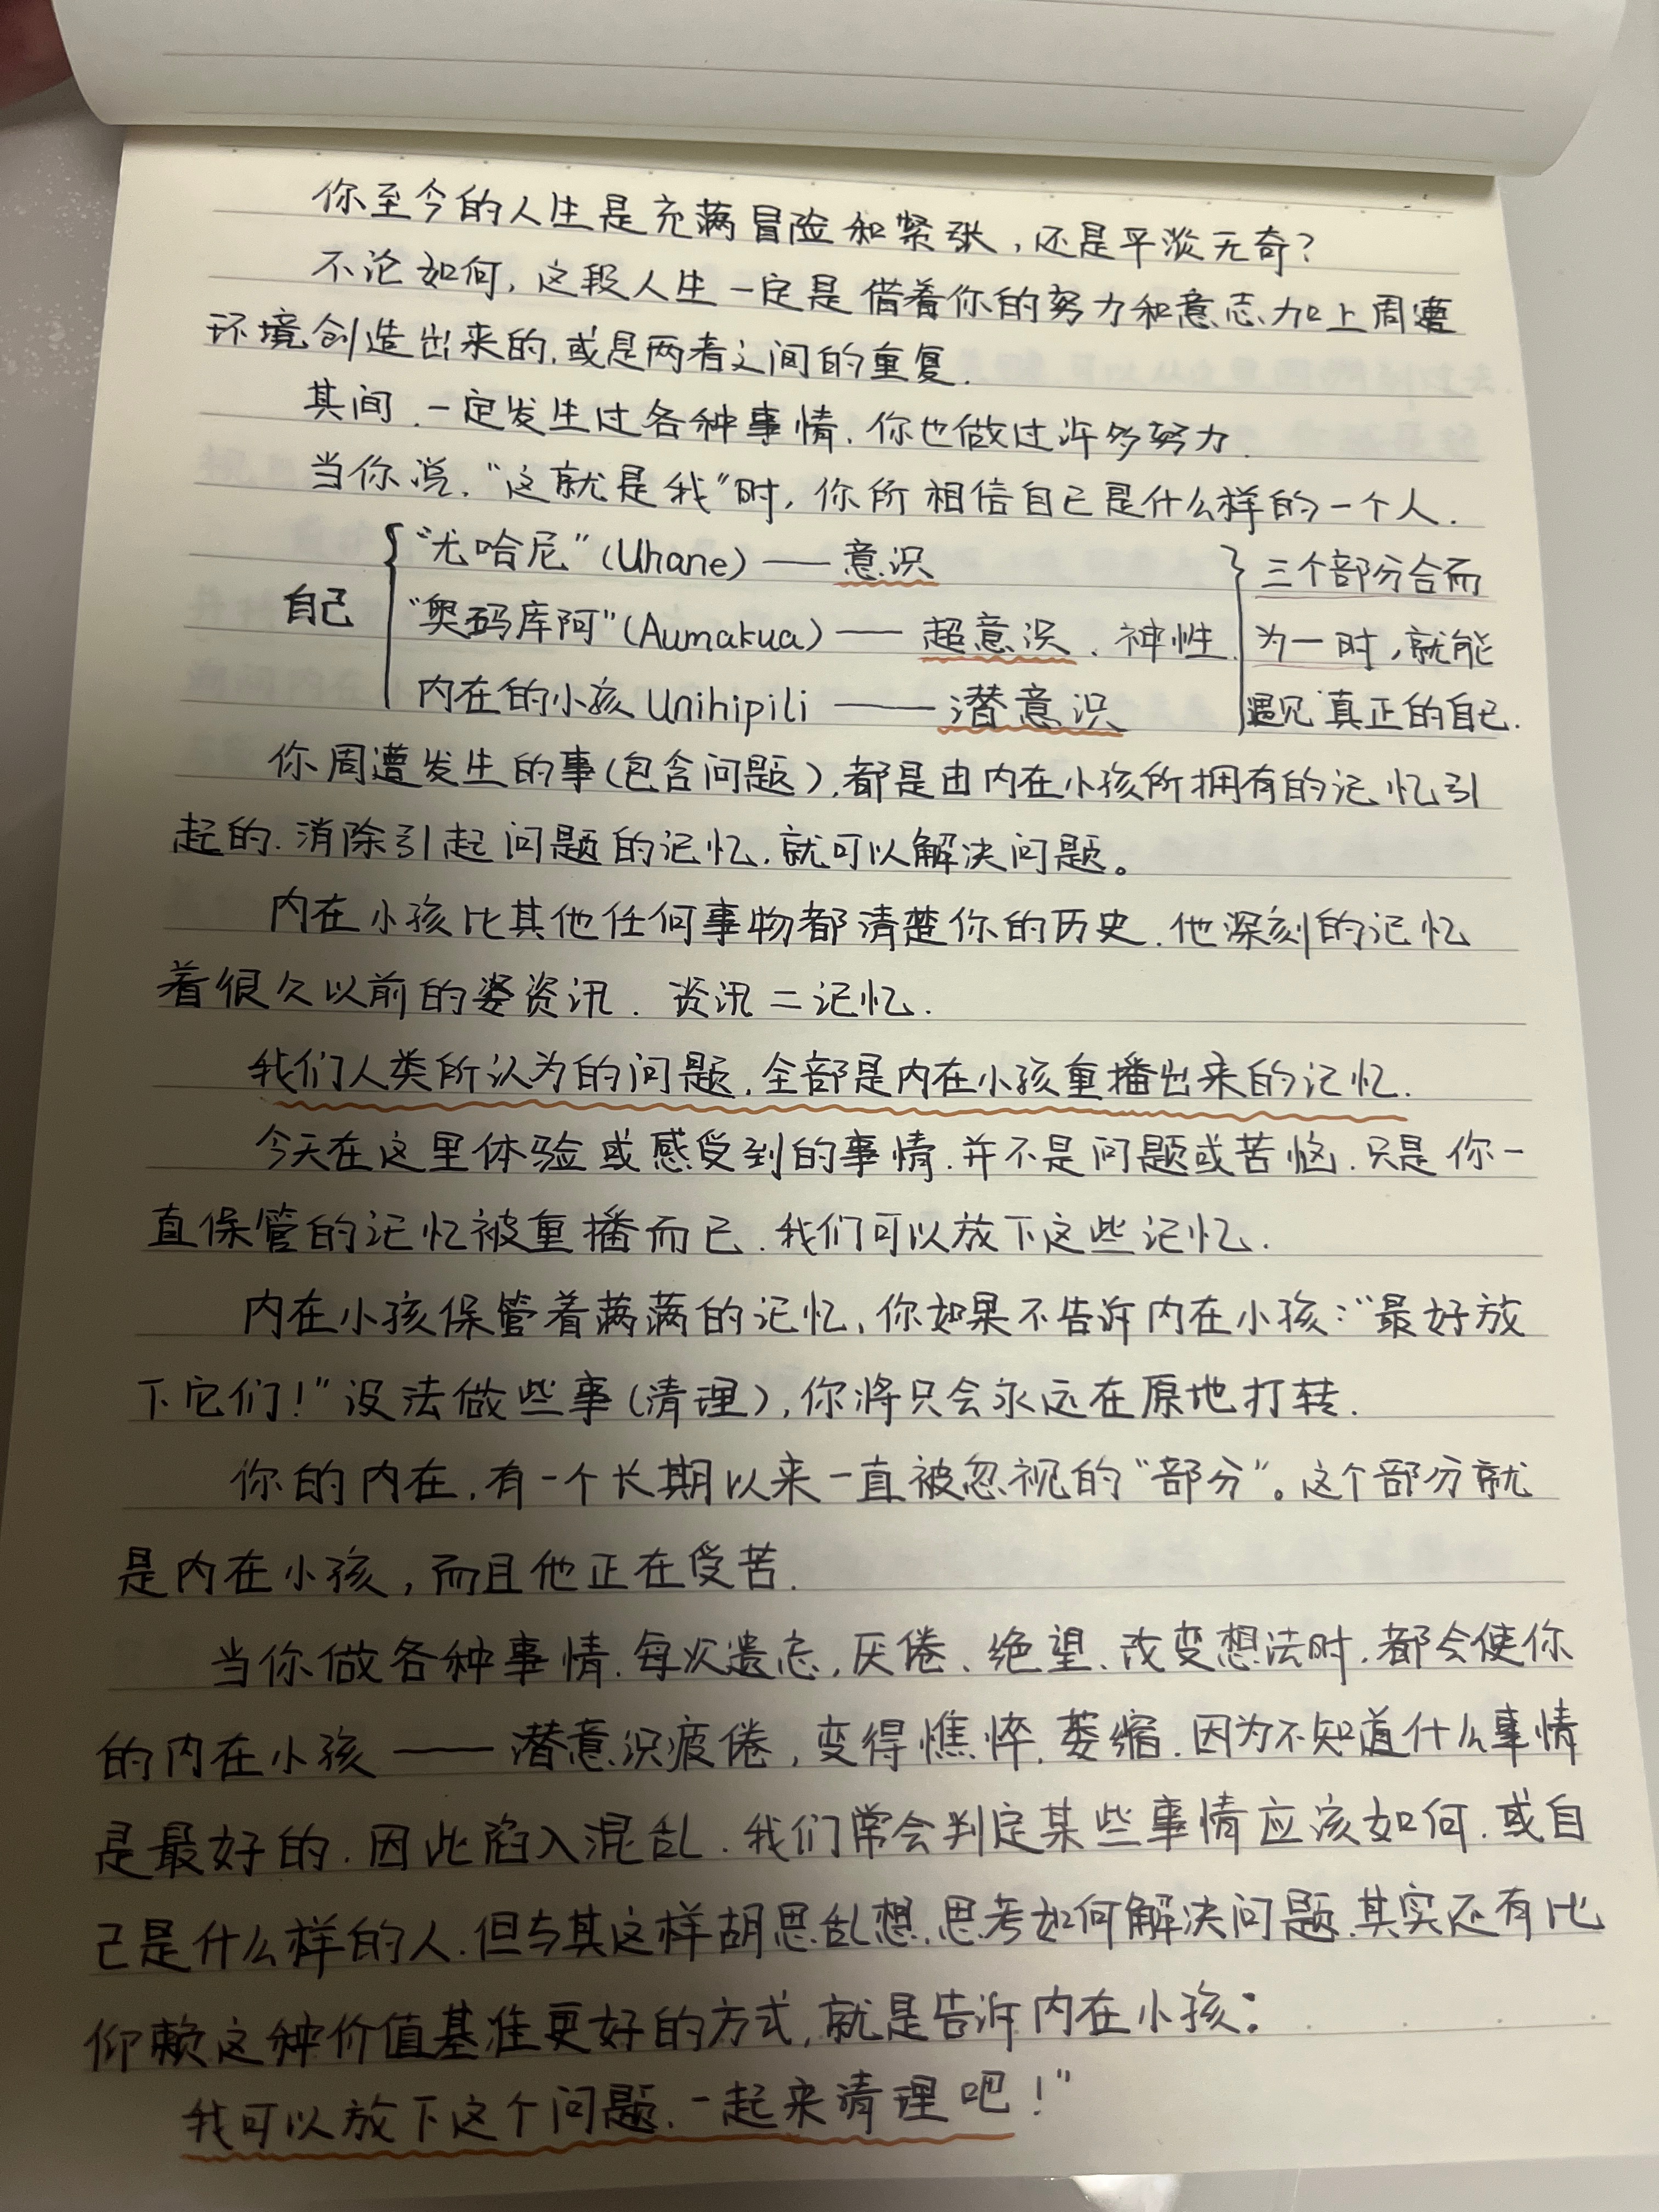 你至今的人生是充满冒险和紧张，还是平淡无奇？
不论如何，这段人生一定是借着你的努力和意志加上周遭
环境创造出来的，或是两者之间的重复.
其间，一定发生过各种事情，你也做过许多努力.
当你说，“这就是我”时，你所相信自己是什么样的一个人.
自己
“尤哈尼”（Uhane）——意识
“奥码库阿”（Aumakua）——超意识、神性.
内在的小孩 Unihipili ——潜意识
三个部分合而
为一时，就能
遇见真正的自己.
你周遭发生的事（包含问题），都是由内在小孩所拥有的记忆引
起的.消除引起问题的记忆，就可以解决问题。
内在小孩比其他任何事物都清楚你的历史.他深刻的记忆
着很久以前的资讯. 资讯=记忆.
我们人类所认为的问题，全部是内在小孩重播出来的记忆.
今天在这里体验或感受到的事情，并不是问题或苦恼.只是你一
直保管的记忆被重播而已.我们可以放下这些记忆.
内在小孩保管着满满的记忆，你如果不告诉内在小孩：“最好放
下它们！”设法做些事（清理），你将只会永远在原地打转.
你的内在，有一个长期以来一直被忽视的“部分”。这个部分就
是内在小孩，而且他正在受苦.
当你做各种事情，每次遗忘，厌倦、绝望、改变想法时，都会使你
的内在小孩——潜意识疲倦，变得憔悴，萎缩.因为不知道什么事情
是最好的，因此陷入混乱.我们常会判定某些事情应该如何，或自
己是什么样的人.但与其这样胡思乱想，思考如何解决问题，其实还有比
仰赖这种价值基准更好的方式，就是告诉内在小孩：
我可以放下这个问题，一起来清理吧！”